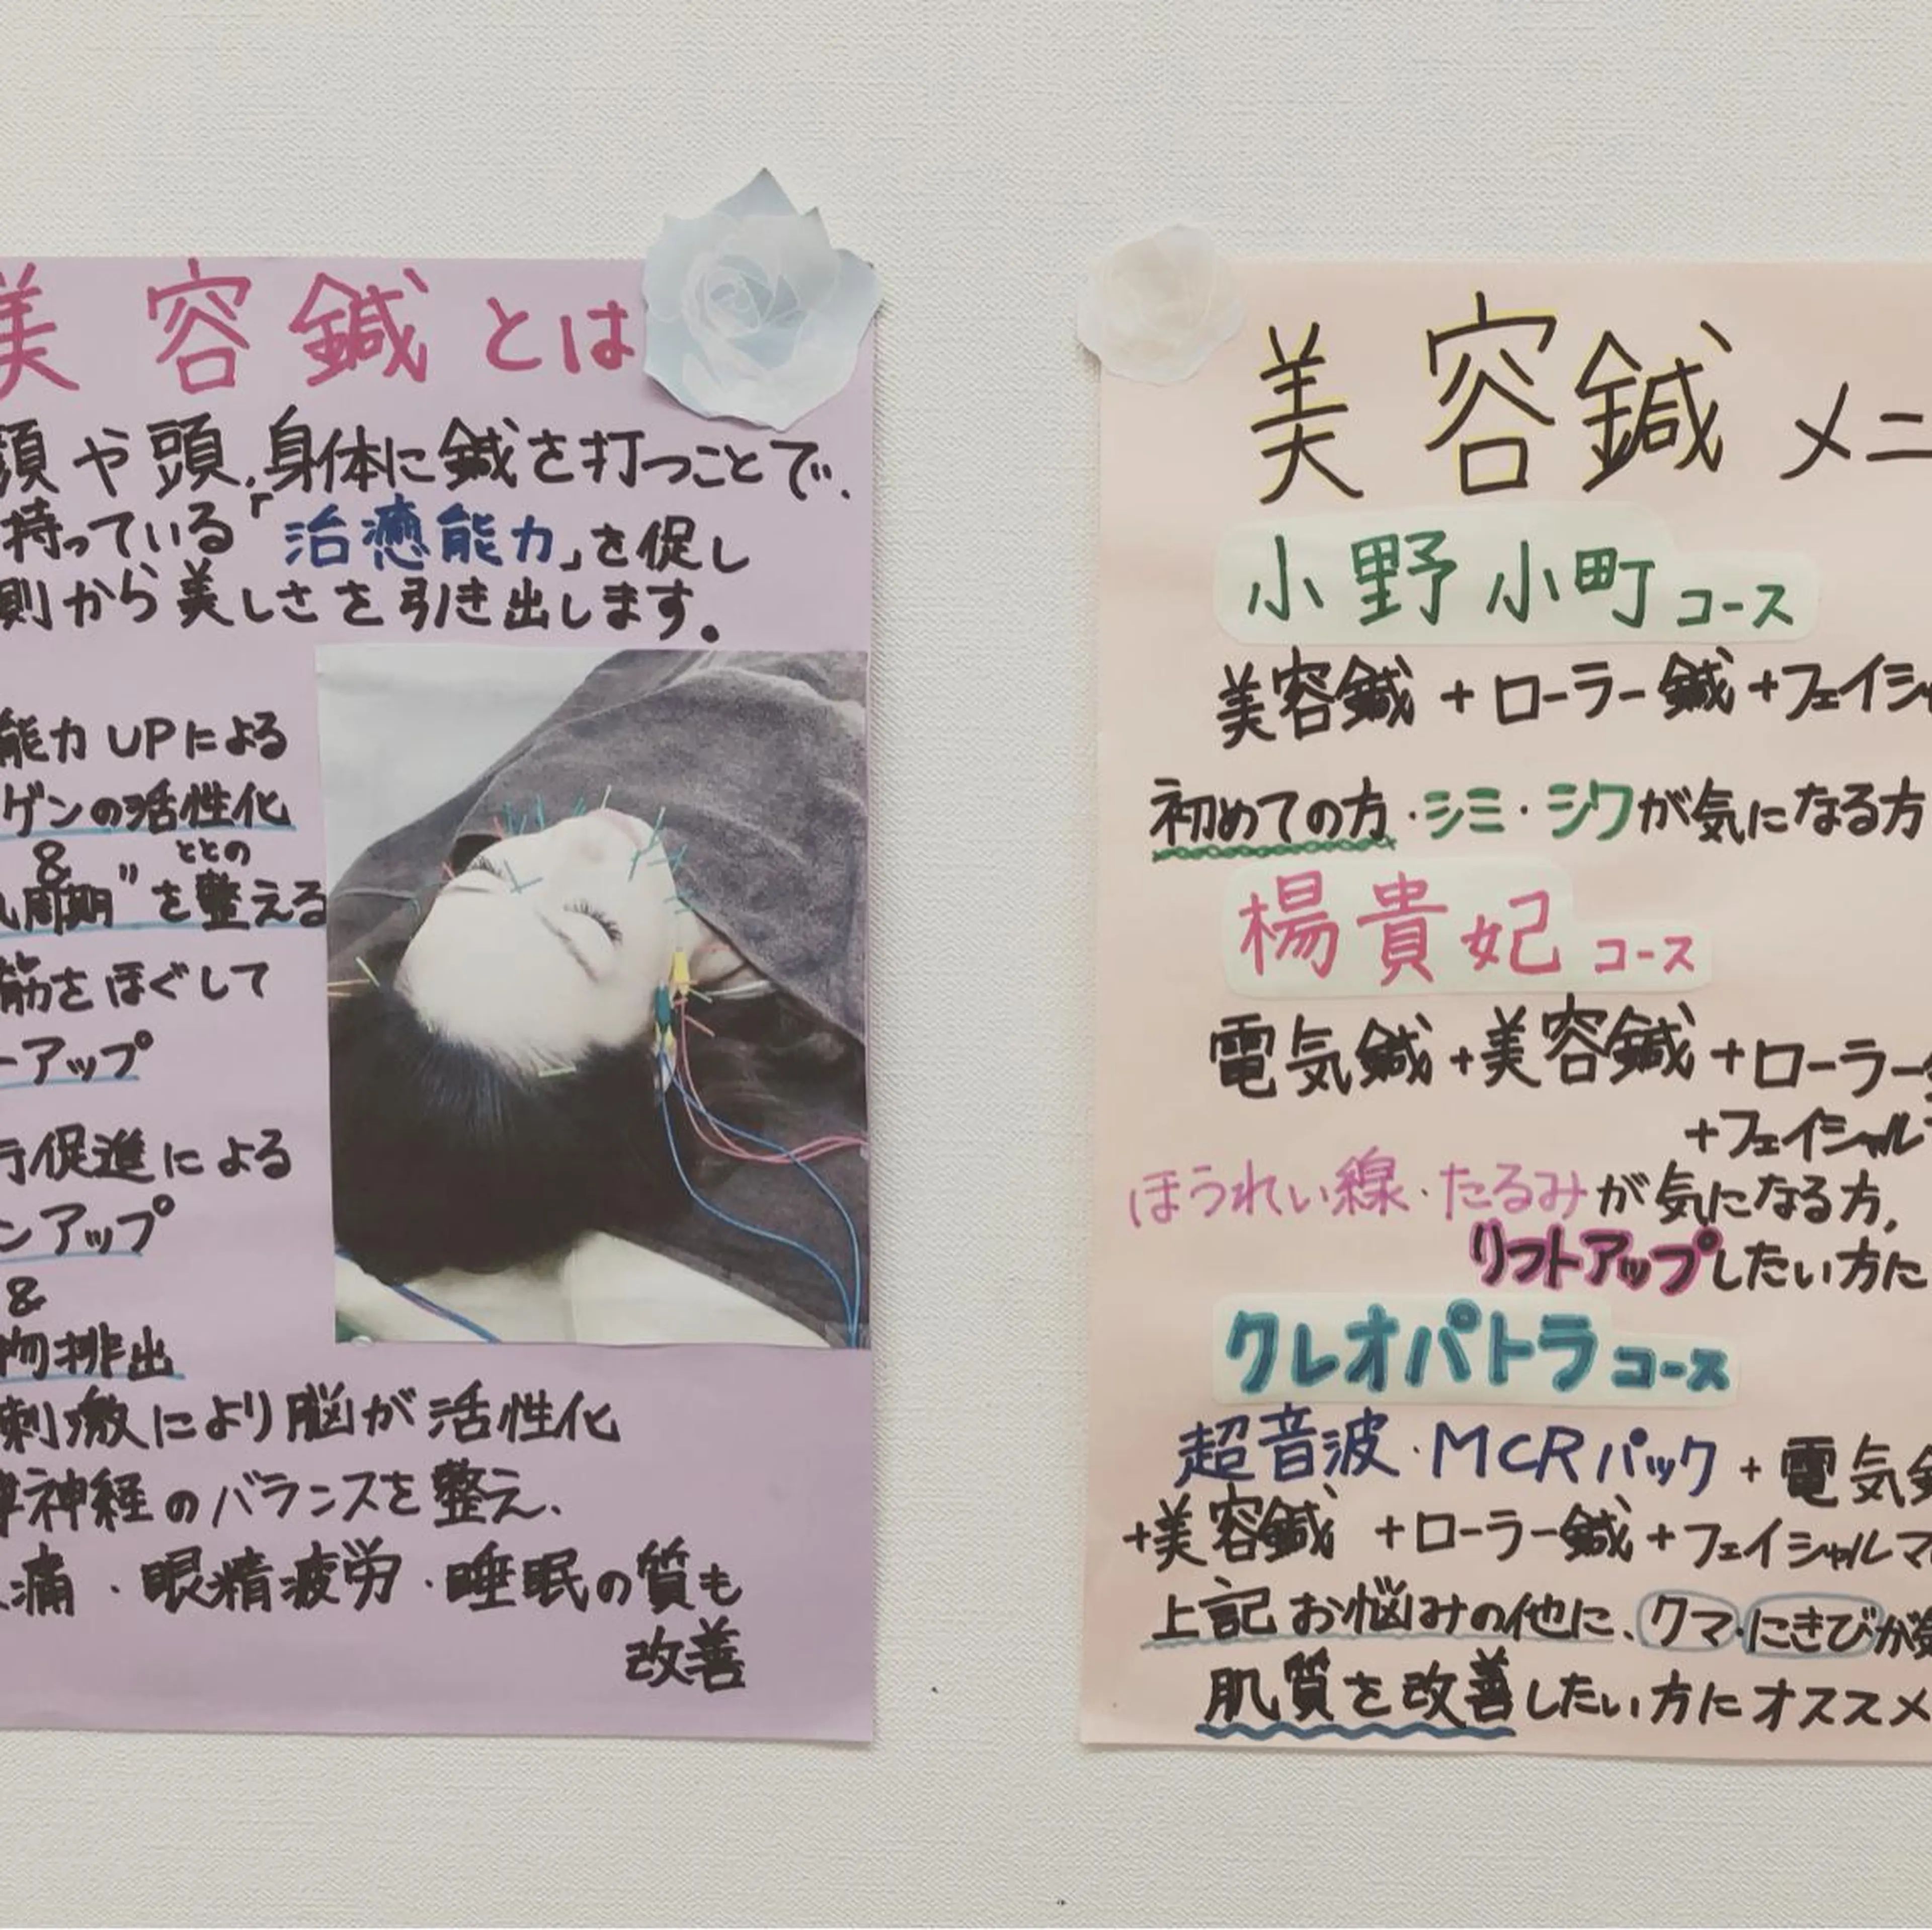 美容鍼とは
顔や頭、身体に鍼を打つことで、
持っている「治癒能力」を促し
側から美しさを引き出します。
能力UPによる
ゲンの活性化
&
ととの
周期"を整える
筋をほぐして
ーアップ
行促進による
ンアップ
&
物排出
刺激により脳が活性化
神経のバランスを整え、
痛・眼精疲労・睡眠の質も
改善
美容鍼メニ
小野小町コース
美容鍼+ローラー鍼+フェイシャ
初めての方・シミ・シワが気になる方
楊貴妃コース
電気鍼+美容鍼+ローラー
+フェイシャル
ほうれい線・たるみが気になる方,
リフトアップしたい方に
クレオパトラコース
超音波・MCRパック+電気
+美容鍼+ローラー鍼+フェイシャルマ
上記お悩みの他に、クマ・にきびが
肌質を改善したい方にオススメ